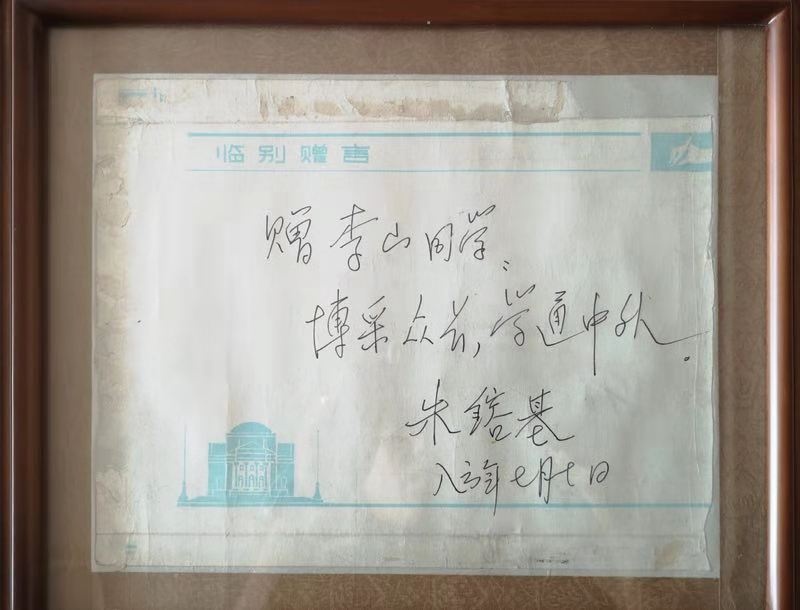 临别赠言
赠李山同学：
博采众长，学通中外。
朱鎔基
八六年七月七日